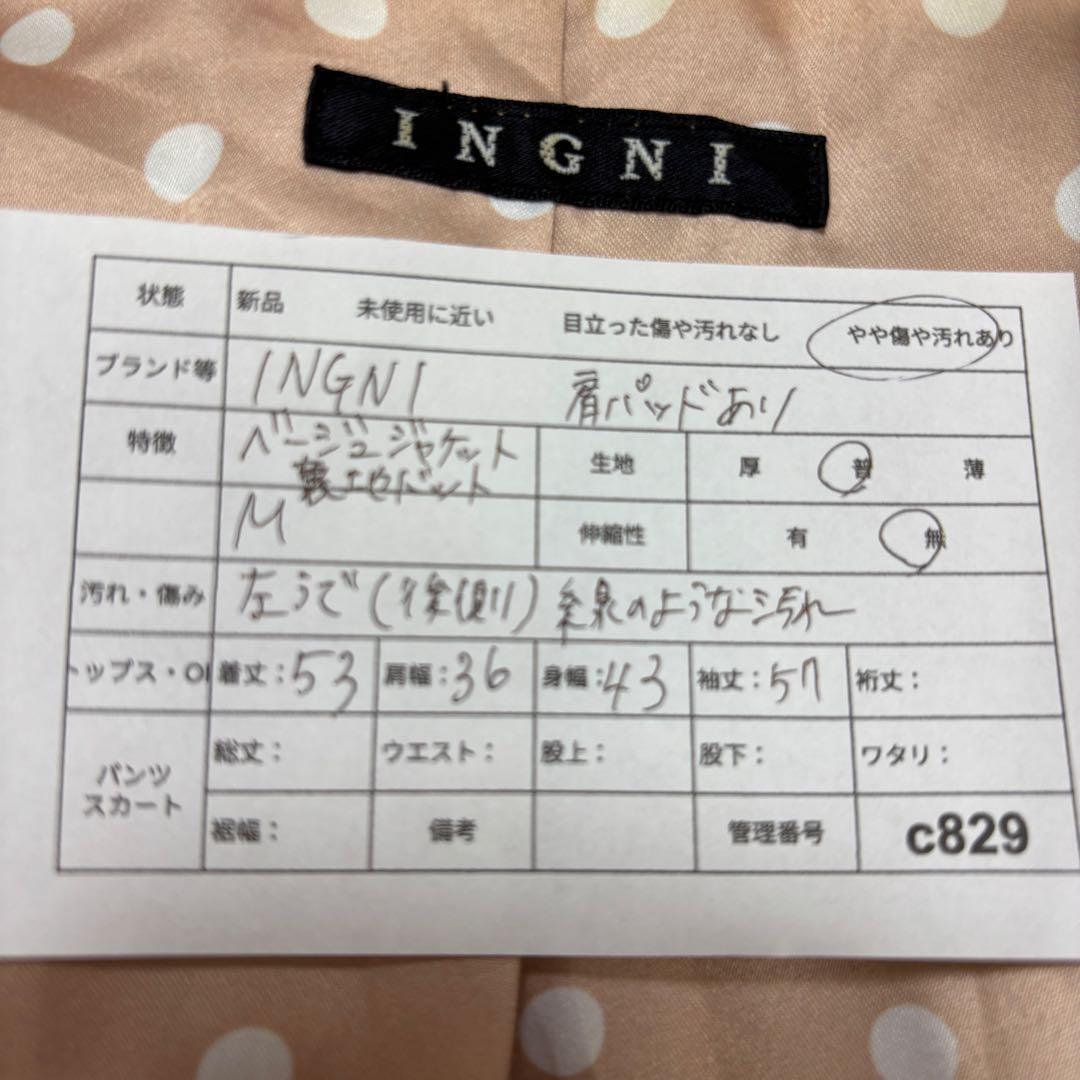 INGNI
状態 新品 未使用に近い 目立った傷や汚れなし やや傷や汚れあり
ブランド等 INGNI 肩パッドあり
特徴 ベージュジャケット 生地 厚 普 薄
裏地ドット
M 伸縮性 有 無
汚れ・傷み 左うで(後側)糸線のような汚れ
トップス・OP 着丈:53 肩幅:36 身幅:43 袖丈:57 裄丈:
パンツ スカート 総丈: ウエスト: 股上: 股下: ワタリ:
裾幅: 備考 管理番号 c829